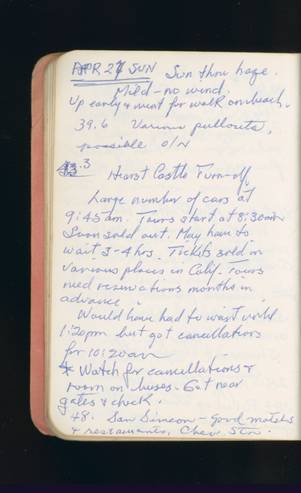 APR 27 SUN Sun thru haze.
Mild - no wind.
Up early & went for walk on beach.
39.6 Various pullouts,
possible o/n
43.3
Hearst Castle Turn-off.
Large number of cars at
9:45am. Tours start at 8:30am
Soon sold out. May have to
wait 3-4 hrs. Tickets sold in
various places in Calif. Tours
need reservations months in
advance.
Would have had to wait until
1:20pm but got cancellations
for 10:20am
* Watch for cancellations &
room on buses. Get near
gates & check.
48. San Simeon - Good motels
& restaurants, Chev. Stn.